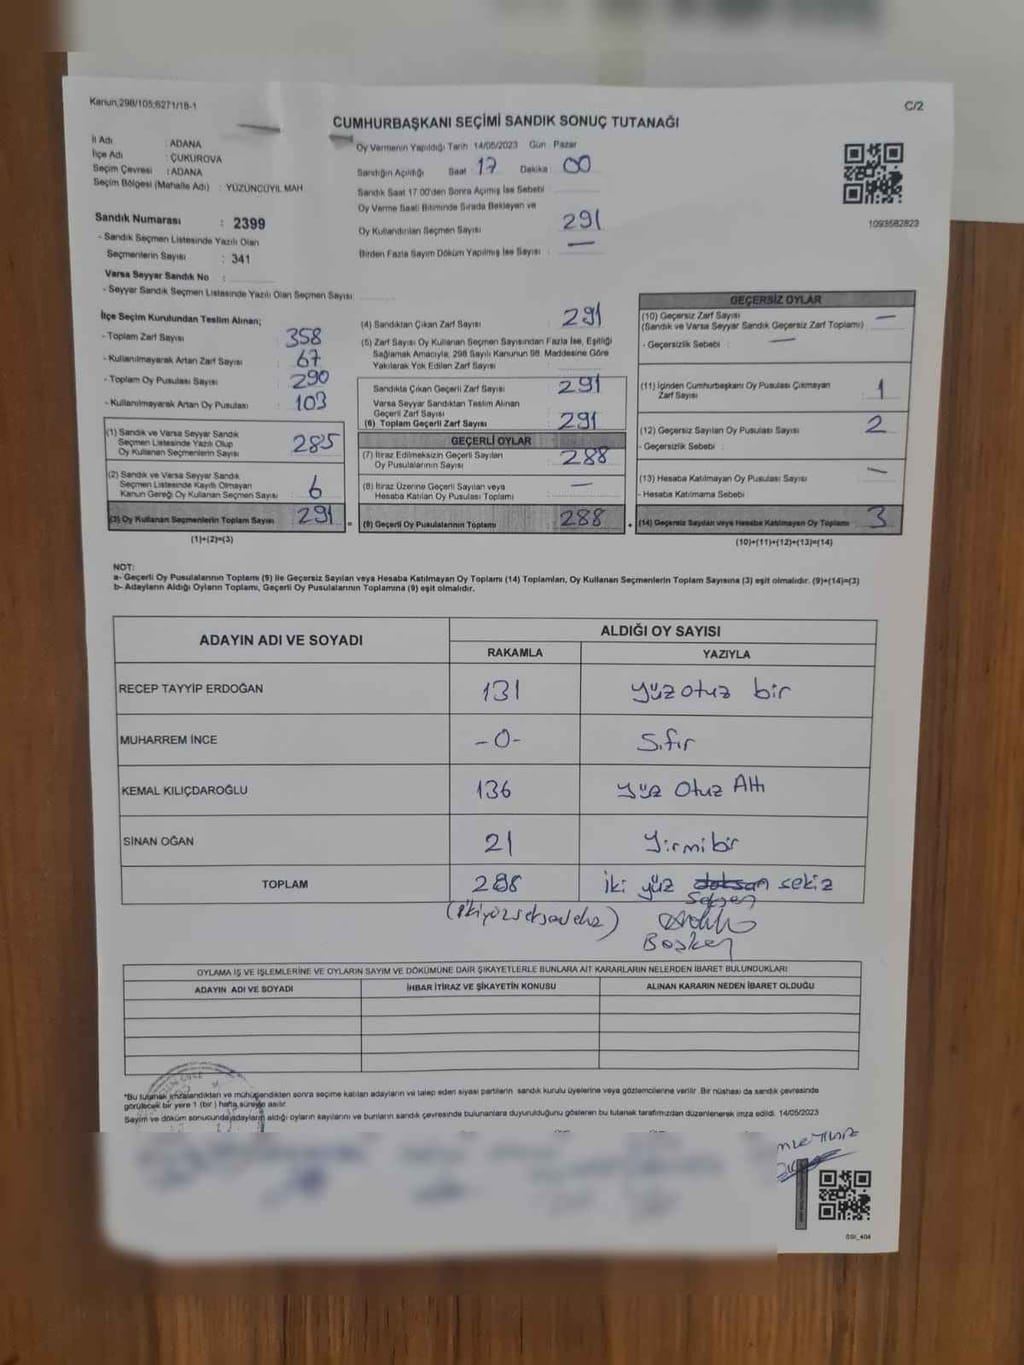 Kanun,298/105;6271/18-1
C/2
CUMHURBAŞKANI SEÇİMİ SANDIK SONUÇ TUTANAĞI
İl Adı : ADANA
İlçe Adı : ÇUKUROVA
Seçim Çevresi : ADANA
Seçim Bölgesi (Mahalle Adı) : YÜZÜNCÜYIL MAH
Sandık Numarası : 2399
- Sandık Seçmen Listesinde Yazılı Olan
Seçmenlerin Sayısı : 341
Varsa Seyyar Sandık No :
- Seyyar Sandık Seçmen Listesinde Yazılı Olan Seçmen Sayısı:
Oy Vermenin Yapıldığı Tarih 14/05/2023 Gün Pazar
Sandığın Açıldığı Saat 17 Dakika 00
Sandık Saat 17.00'den Sonra Açılmış İse Sebebi
Oy Verme Saati Bitiminde Sırada Bekleyen ve
Oy Kullandırılan Seçmen Sayısı 291
Birden Fazla Sayım Döküm Yapılmış İse Sayısı : —
1093582823
İlçe Seçim Kurulundan Teslim Alınan;
- Toplam Zarf Sayısı 358
- Kullanılmayarak Artan Zarf Sayısı 67
- Toplam Oy Pusulası Sayısı 290
- Kullanılmayarak Artan Oy Pusulası 103
(1) Sandık ve Varsa Seyyar Sandık
Seçmen Listesinde Yazılı Olup
Oy Kullanan Seçmenlerin Sayısı 285
(2) Sandık ve Varsa Seyyar Sandık
Seçmen Listesinde Kayıtlı Olmayan
Kanun Gereği Oy Kullanan Seçmen Sayısı 6
(3) Oy Kullanan Seçmenlerin Toplam Sayısı 291
(1)+(2)=(3)
(4) Sandıktan Çıkan Zarf Sayısı 291
(5) Zarf Sayısı Oy Kullanan Seçmen Sayısından Fazla İse, Eşitliği
Sağlamak Amacıyla, 298 Sayılı Kanunun 98. Maddesine Göre
Yakılarak Yok Edilen Zarf Sayısı
Sandıkta Çıkan Geçerli Zarf Sayısı 291
Varsa Seyyar Sandıktan Teslim Alınan
Geçerli Zarf Sayısı
(6) Toplam Geçerli Zarf Sayısı 291
GEÇERLİ OYLAR
(7) İtiraz Edilmeksizin Geçerli Sayılan
Oy Pusulalarının Sayısı 288
(8) İtiraz Üzerine Geçerli Sayılan veya
Hesaba Katılan Oy Pusulası Toplamı —
= (9) Geçerli Oy Pusulalarının Toplamı 288
GEÇERSİZ OYLAR
(10) Geçersiz Zarf Sayısı —
(Sandık ve Varsa Seyyar Sandık Geçersiz Zarf Toplamı)
- Geçersizlik Sebebi : —
(11) İçinden Cumhurbaşkanı Oy Pusulası Çıkmayan
Zarf Sayısı 1
(12) Geçersiz Sayılan Oy Pusulası Sayısı 2
- Geçersizlik Sebebi :
(13) Hesaba Katılmayan Oy Pusulası Sayısı —
- Hesaba Katılmama Sebebi
+ (14) Geçersiz Sayılan veya Hesaba Katılmayan Oy Toplamı 3
(10)+(11)+(12)+(13)=(14)
NOT:
a- Geçerli Oy Pusulalarının Toplamı (9) ile Geçersiz Sayılan veya Hesaba Katılmayan Oy Toplamı (14) Toplamları, Oy Kullanan Seçmenlerin Toplam Sayısına (3) eşit olmalıdır. (9)+(14)=(3)
b- Adayların Aldığı Oyların Toplamı, Geçerli Oy Pusulalarının Toplamına (9) eşit olmalıdır.
ADAYIN ADI VE SOYADI ALDIĞI OY SAYISI
RAKAMLA YAZIYLA
RECEP TAYYİP ERDOĞAN 131 yüzotuz bir
MUHARREM İNCE -0- Sıfır
KEMAL KILIÇDAROĞLU 136 yüz Otuz Altı
SİNAN OĞAN 21 Yirmibir
TOPLAM 288 iki yüz doksan sekiz
Seksen
Başkan
OYLAMA İŞ VE İŞLEMLERİNE VE OYLARIN SAYIM VE DÖKÜMÜNE DAİR ŞİKAYETLERLE BUNLARA AİT KARARLARIN NELERDEN İBARET BULUNDUKLARI
ADAYIN ADI VE SOYADI İHBAR İTİRAZ VE ŞİKAYETİN KONUSU ALINAN KARARIN NEDEN İBARET OLDUĞU
*Bu tutanak imzalandıktan ve mühürlendikten sonra seçime katılan adayların ve talep eden siyasi partilerin sandık kurulu üyelerine veya gözlemcilerine verilir. Bir nüshası da sandık çevresinde
görülecek bir yere 1 (bir) hafta süreyle asılır.
Sayım ve döküm sonucunda adayların aldığı oyların kayılarını ve bunların sandık çevresinde bulunanlara duyurulduğunu gösteren bu tutanak tarafımızdan düzenlenerek imza edildi. 14/05/2023
SSI_404